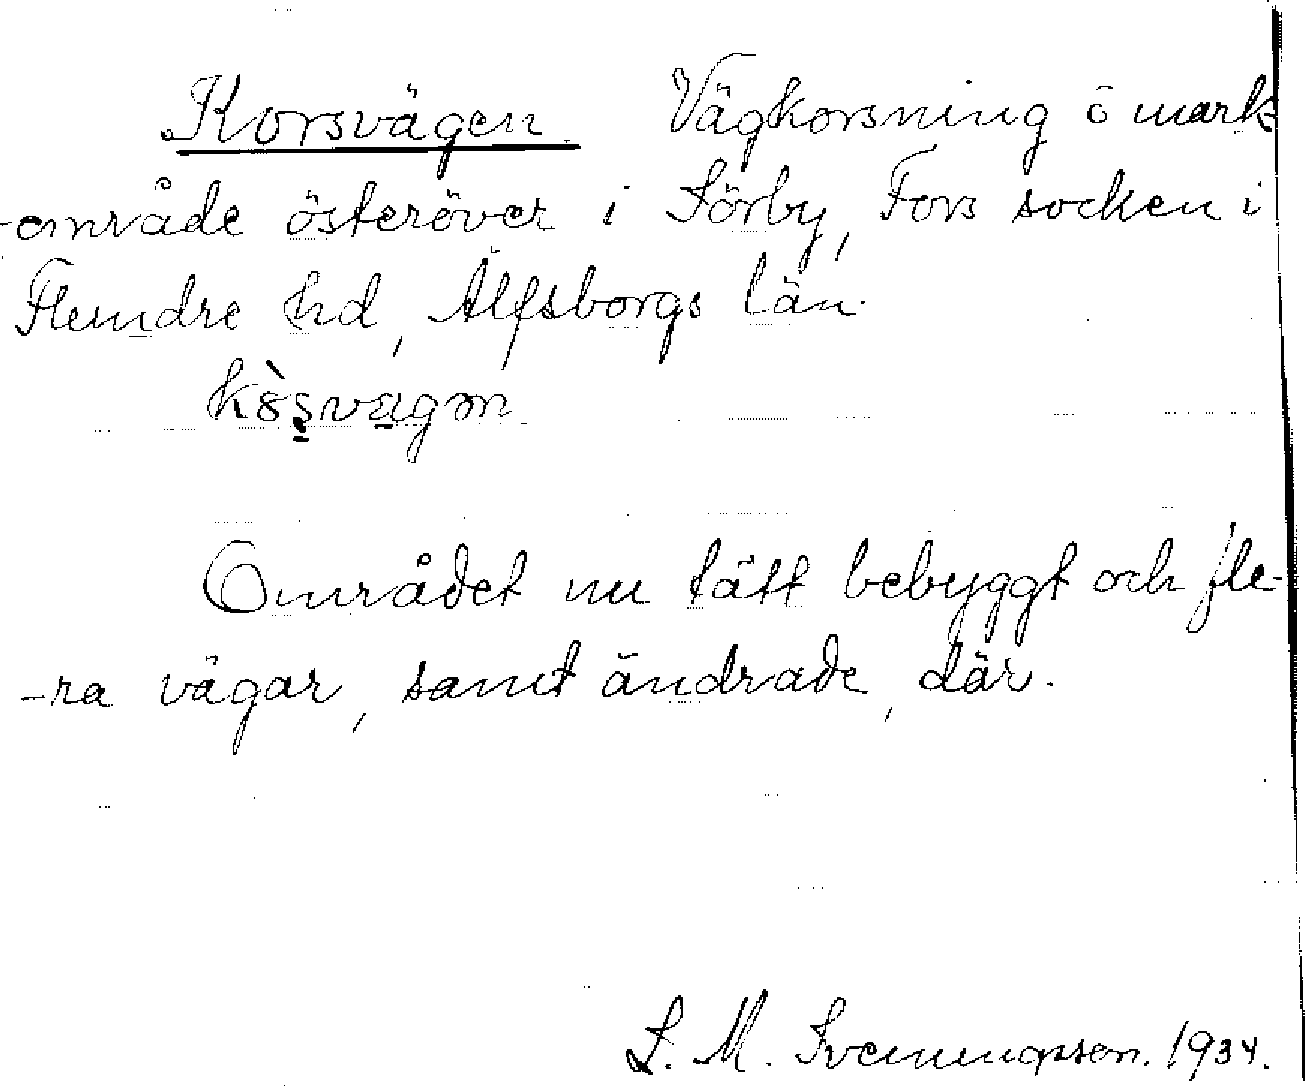 Korsvägen Vägkorsning o mark
-område österöver i Sörby, Fors socken i
Flundre hd, Älfsborgs län.
Området nu tätt bebyggt och fle-
-ra vägar, samt ändrade, där.
S. M. Svenningsson. 1934.